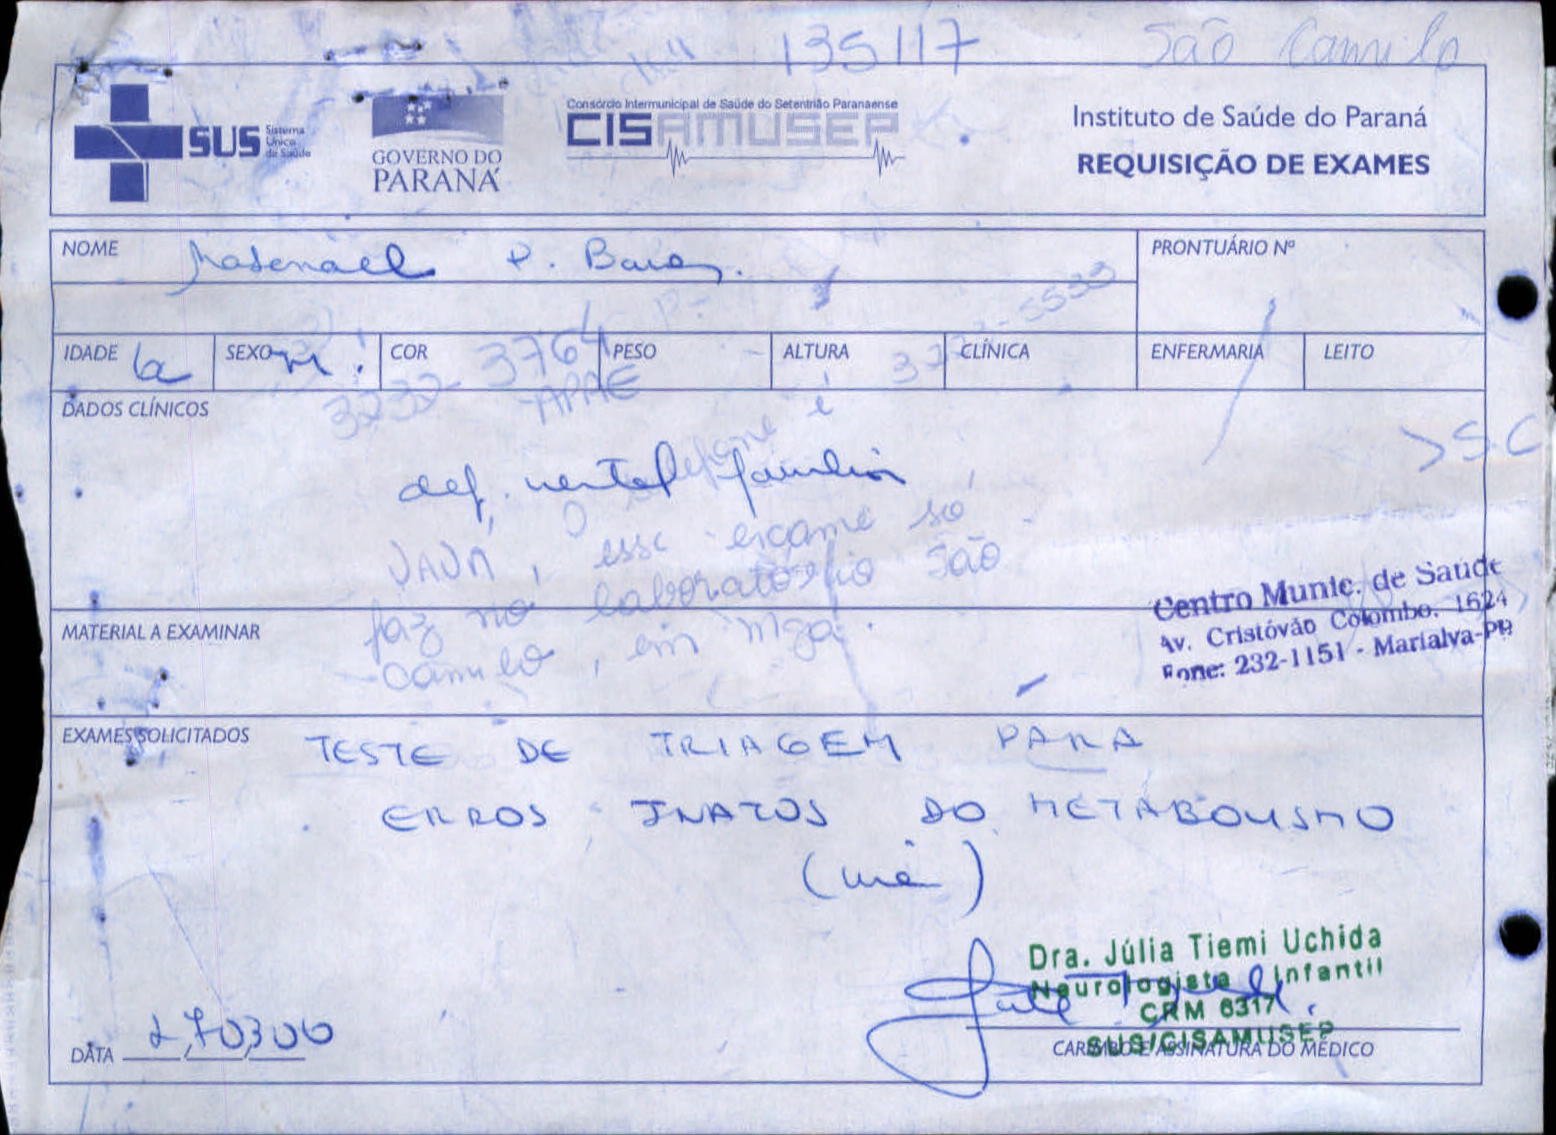 135117
São Camilo
SUS Sistema Único de Saúde
GOVERNO DO PARANÁ
Consórcio Intermunicipal de Saúde do Setentrião Paranaense
CISAMUSEP
Instituto de Saúde do Paraná
REQUISIÇÃO DE EXAMES
NOME P.
PRONTUÁRIO Nº
IDADE 6a
SEXO m.
COR
PESO
ALTURA
CLÍNICA
ENFERMARIA
LEITO
3232-3764
APAE
DADOS CLÍNICOS
> S.C
def. mental familiar
telefone é
, esse exame só
faz no laboratório São
Camilo, em Mgá.
MATERIAL A EXAMINAR
Centro Munic. de Saúde
Av. Cristóvão Colombo, 1624
Fone: 232-1151 - Marialva-PR
EXAMES SOLICITADOS
TESTE DE TRIAGEM PARA
ERROS INATOS DO METABOLISMO
Dra. Júlia Tiemi Uchida
Neurologista Infantil
CRM 6317
SUS/CISAMUSEP
DATA 270300
CARIMBO E ASSINATURA DO MÉDICO